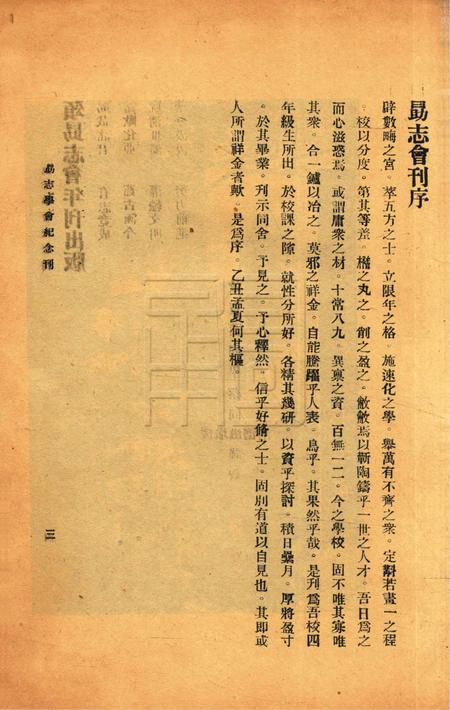 勗志會刊序
辟數畮之宮。萃五方之士。立限年之格。施速化之學。舉萬有不齊之衆。定斠若畫一之程
。校以分度。第其等差。橢之丸之。削之盈之。敝敝焉以蘄陶鑄乎一世之人才。吾日爲之
而心滋惑焉。或謂庸衆之材。十常八九。異禀之資。百無一二。今之學校。固不唯其寡唯
其衆。合一鑪以冶之。莫邪之祥金。自能騰躍乎人表。烏乎。其果然乎哉。是刋爲吾校四
年級生所出。於校課之隙。就性分所好。各精其幾研。以資乎探討。積日纍月。厚將盈寸
。於其畢業。刋示同舍。予見之。予心釋然。信乎好脩之士。固別有道以自見也。其卽或
人所謂祥金者歟。是爲序。乙丑孟夏何其樞
勗志學會紀念刊
三